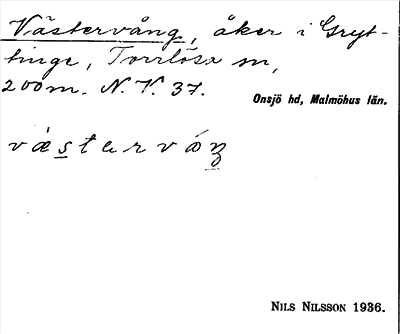 Västervång, åker i Gryt-
tinge, Torrlösa sn,
200m. N.V. 37.
Onsjö hd, Malmöhus län.
væstervåŋ
NILS NILSSON 1936.